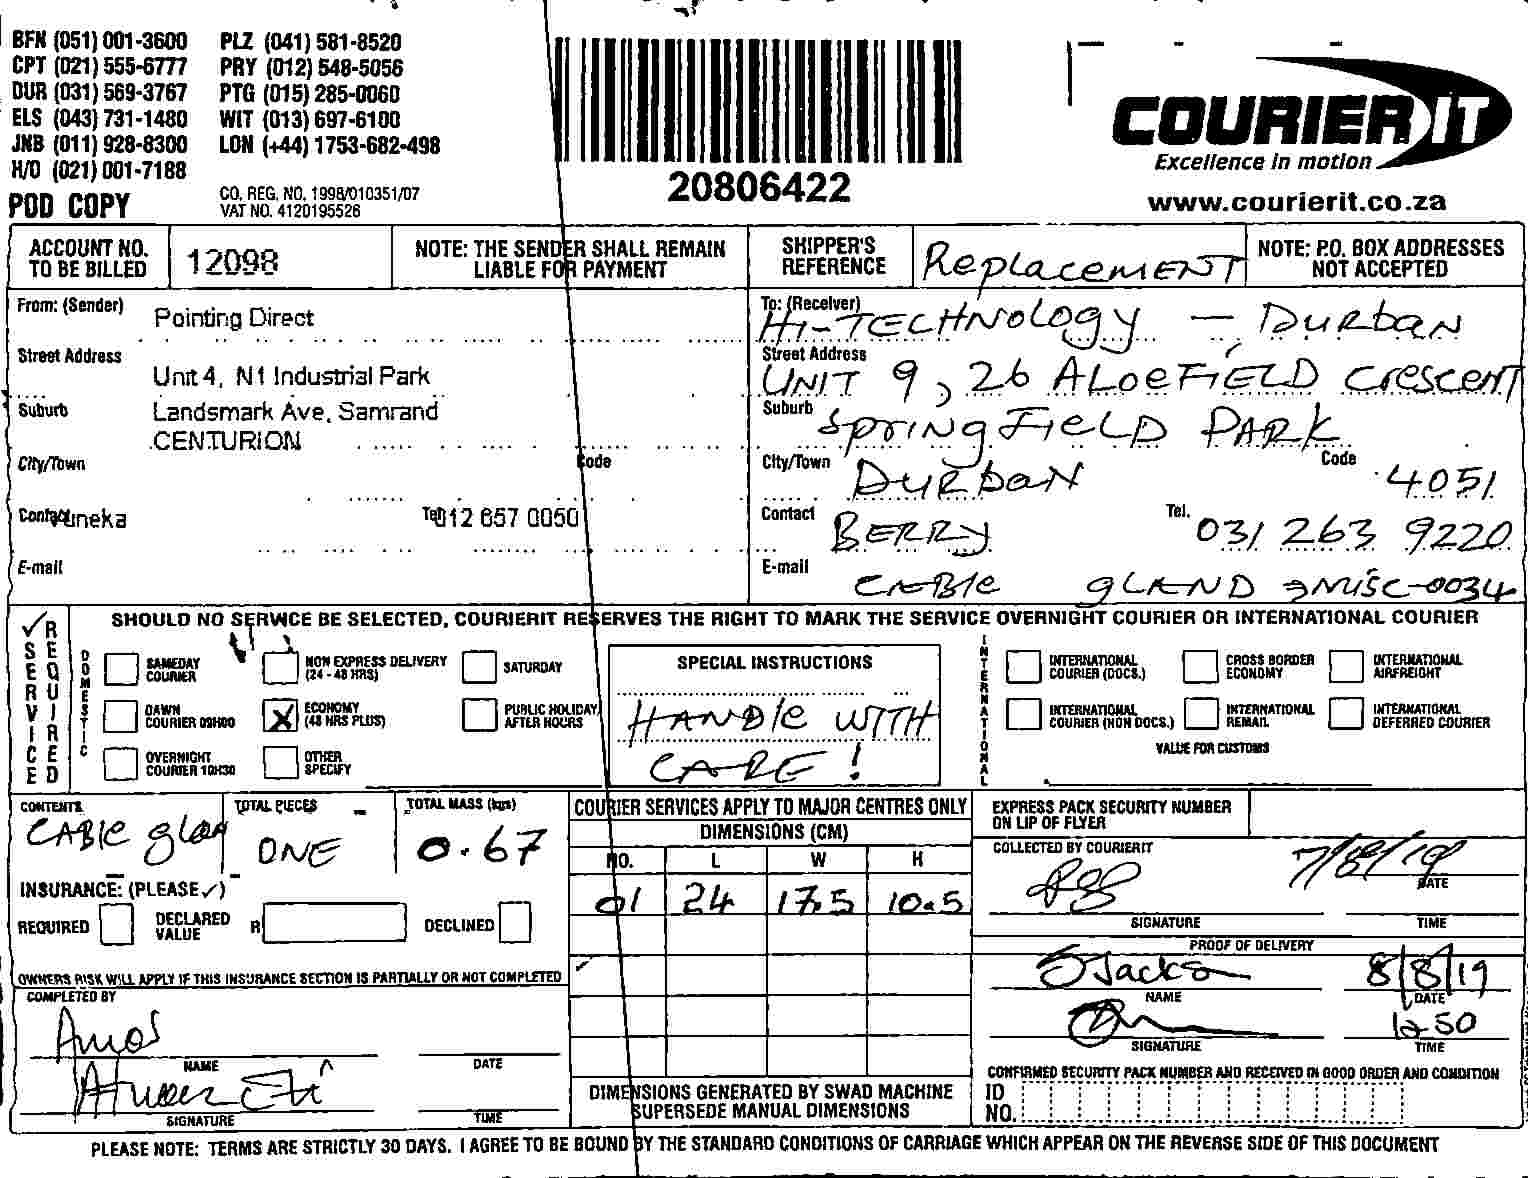 BFN (051) 001-3600 PLZ (041) 581-8520
CPT (021) 555-6777 PRY (012) 548-5056
DUR (031) 569-3767 PTG (015) 285-0060
ELS (043) 731-1480 WIT (013) 697-6100
JNB (011) 928-8300 LON (+44) 1753-682-498
H/O (021) 001-7188
POD COPY
CO. REG. NO. 1998/010351/07
VAT NO. 4120195526
20806422
COURIER IT
Excellence in motion
www.courierit.co.za
ACCOUNT NO. TO BE BILLED
12098
NOTE: THE SENDER SHALL REMAIN LIABLE FOR PAYMENT
SHIPPER'S REFERENCE
Replacement
NOTE: P.O. BOX ADDRESSES NOT ACCEPTED
From: (Sender) Pointing Direct
Street Address
Unit 4, N1 Industrial Park
Suburb Landsmark Ave, Samrand
CENTURION
City/Town Code
Contact Yuneka Tel 012 657 0050
E-mail
To: (Receiver)
Hi-TECHNology - Durban
Street Address
UNIT 9, 26 ALOEFIELD Crescent
Suburb SpringFIELD PARK
City/Town Durban Code 4051
Contact BERRY Tel. 031 263 9220
E-mail
CABle gLAND 3MISC-0034
✓ SERVICE REQUIRED
SHOULD NO SERVICE BE SELECTED, COURIERIT RESERVES THE RIGHT TO MARK THE SERVICE OVERNIGHT COURIER OR INTERNATIONAL COURIER
DOMESTIC
SAMEDAY COURIER
NON EXPRESS DELIVERY (24 - 48 HRS)
SATURDAY
DAWN COURIER 09H00
X ECONOMY (48 HRS PLUS)
PUBLIC HOLIDAY/ AFTER HOURS
OVERNIGHT COURIER 10H30
OTHER SPECIFY
SPECIAL INSTRUCTIONS
HANDle WITH
CARE!
INTERNATIONAL
INTERNATIONAL COURIER (DOCS.)
CROSS BORDER ECONOMY
INTERNATIONAL AIRFREIGHT
INTERNATIONAL COURIER (NON DOCS.)
INTERNATIONAL REMAIL
INTERNATIONAL DEFERRED COURIER
VALUE FOR CUSTOMS
CONTENTS TOTAL PIECES TOTAL MASS (kgs)
CABle glan ONE 0.67
INSURANCE: (PLEASE ✓)
REQUIRED DECLARED VALUE R DECLINED
OWNERS RISK WILL APPLY IF THIS INSURANCE SECTION IS PARTIALLY OR NOT COMPLETED
COMPLETED BY
Amos
NAME DATE
SIGNATURE TIME
COURIER SERVICES APPLY TO MAJOR CENTRES ONLY
DIMENSIONS (CM)
NO. L W H
01 24 17.5 10.5
DIMENSIONS GENERATED BY SWAD MACHINE
SUPERSEDE MANUAL DIMENSIONS
EXPRESS PACK SECURITY NUMBER ON LIP OF FLYER
COLLECTED BY COURIERIT
7/8/19
DATE
SIGNATURE TIME
PROOF OF DELIVERY
8/8/19
NAME DATE
12-50
SIGNATURE TIME
CONFIRMED SECURITY PACK NUMBER AND RECEIVED IN GOOD ORDER AND CONDITION
ID NO.
PLEASE NOTE: TERMS ARE STRICTLY 30 DAYS. I AGREE TO BE BOUND BY THE STANDARD CONDITIONS OF CARRIAGE WHICH APPEAR ON THE REVERSE SIDE OF THIS DOCUMENT